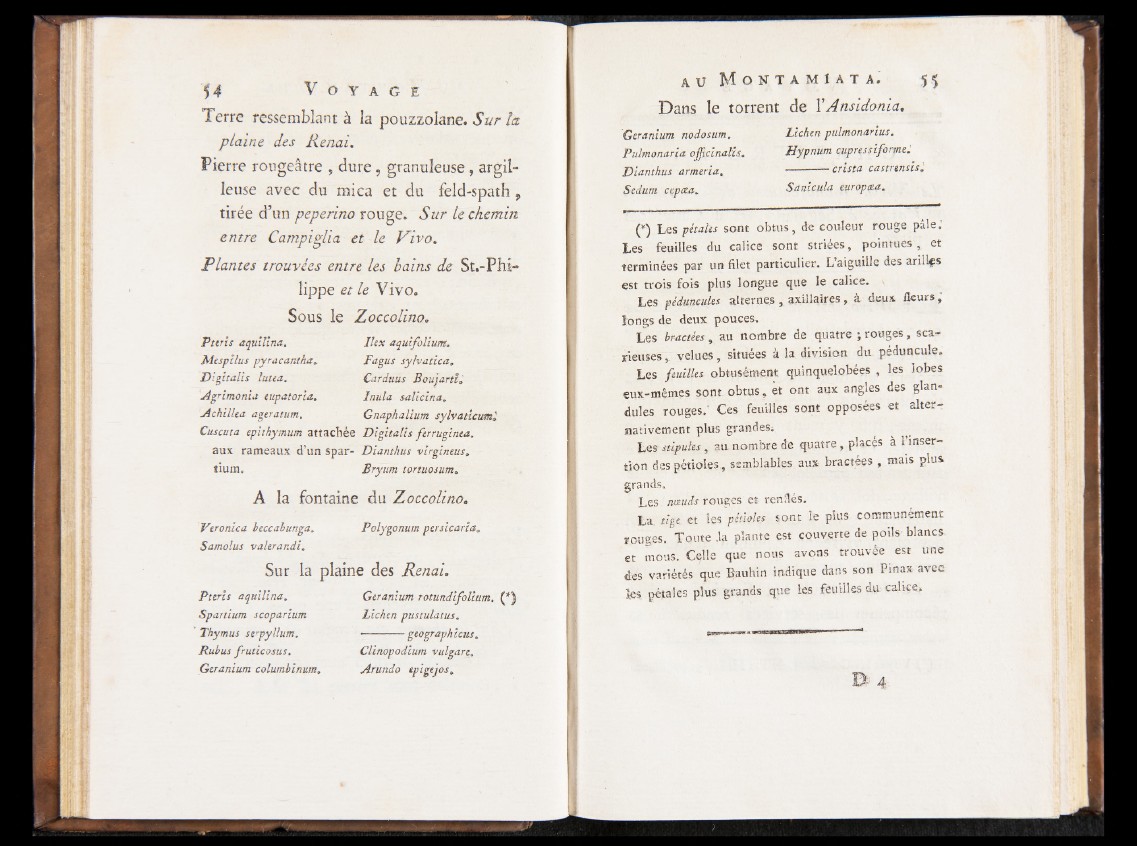 54 VOYAGE
Terre ressemblant à la pouzzolane. Sur la
plaine des Renai.
Pierre rougeâtre , dure , granuleuse , argil-
leuse avec du mica et du feld-spath ,
tirée d'un peperino rouge. Sur le chemin
entre Campiglia et le Vivo.
Plantes trouvées entre les bains de St.-Phi-
lippe et le Vivo.
Sous le Zoccolino.
Pteris aquilina. Ilex aquifolium.
Mespilus pyracantha. Fagus sylvatica.
Digitalis lutea. Carduus Boujarti.
Agrimonia eupatoria. Inula salicina.
Achillea ageratum. Gnaphalium sylvaticum.
Cuscuta epithymum attachée Digitalis ferruginea.
aux rameaux d'un spar- Dianthus virgineus.
tium. Bryum tortuosum.
A la fontaine du Zoccolino.
Veronica beccabunga. Polygonum persicaria.
Samolus valerandi.
Sur la plaine des Renai.
Pteris aquilina. Geranium rotundifolium. (*)
Spartium scoparium Lichen pustulatus.
Thymus serpyllum. ——— geographicus.
Rubus fruticosus. Clinopodium vulgare.
Geranium columbinum. Arundo epigejos.
AU MONTAMIATA. 55
Dans le torrent de l'Ansidonia.
Geranium nodosum. Lichen pulmonarius.
Pulmonaria officinalis. Hypnum cupressiforme.
Dianthus armeria. ——— crista castrensis.
Sedum cepæa. Sanicula europæa.
(*) Les pétales sont obtus , de couleur rouge pâle.
Les feuilles du calice sont striées , pointues , et
terminées par un filet particulier. L'aiguille des arilles
est trois fois plus longue que le calice.
Les péduncules alternes , axillaires , à deux fleurs ,
longs de deux pouces.
Les bractées , au nombre de quatre ; rouges , sca-
rieuses , velues , situées à la division du péduncule.
Les feuilles obtusément quinquelobées , les lobes
eux-mêmes sont obtus , et ont aux angles des glan-
dules rouges. Ces feuilles sont opposées et alter-
nativement plus grandes.
Les stipules , au nombre de quatre , placés à l'inser-
tion des pétioles , semblables aux bractées , mais plus
grands.
Les nœuds rouges et renflés.
La tige et les pétioles sont le plus communément
rouges. Toute la plante est couverte de poils blancs
et mous. Celle que nous avons trouvée est une
des variétés que Bauhin indique dans son Pinax avec
les pétales plus grands que les feuilles du calice.
D 4